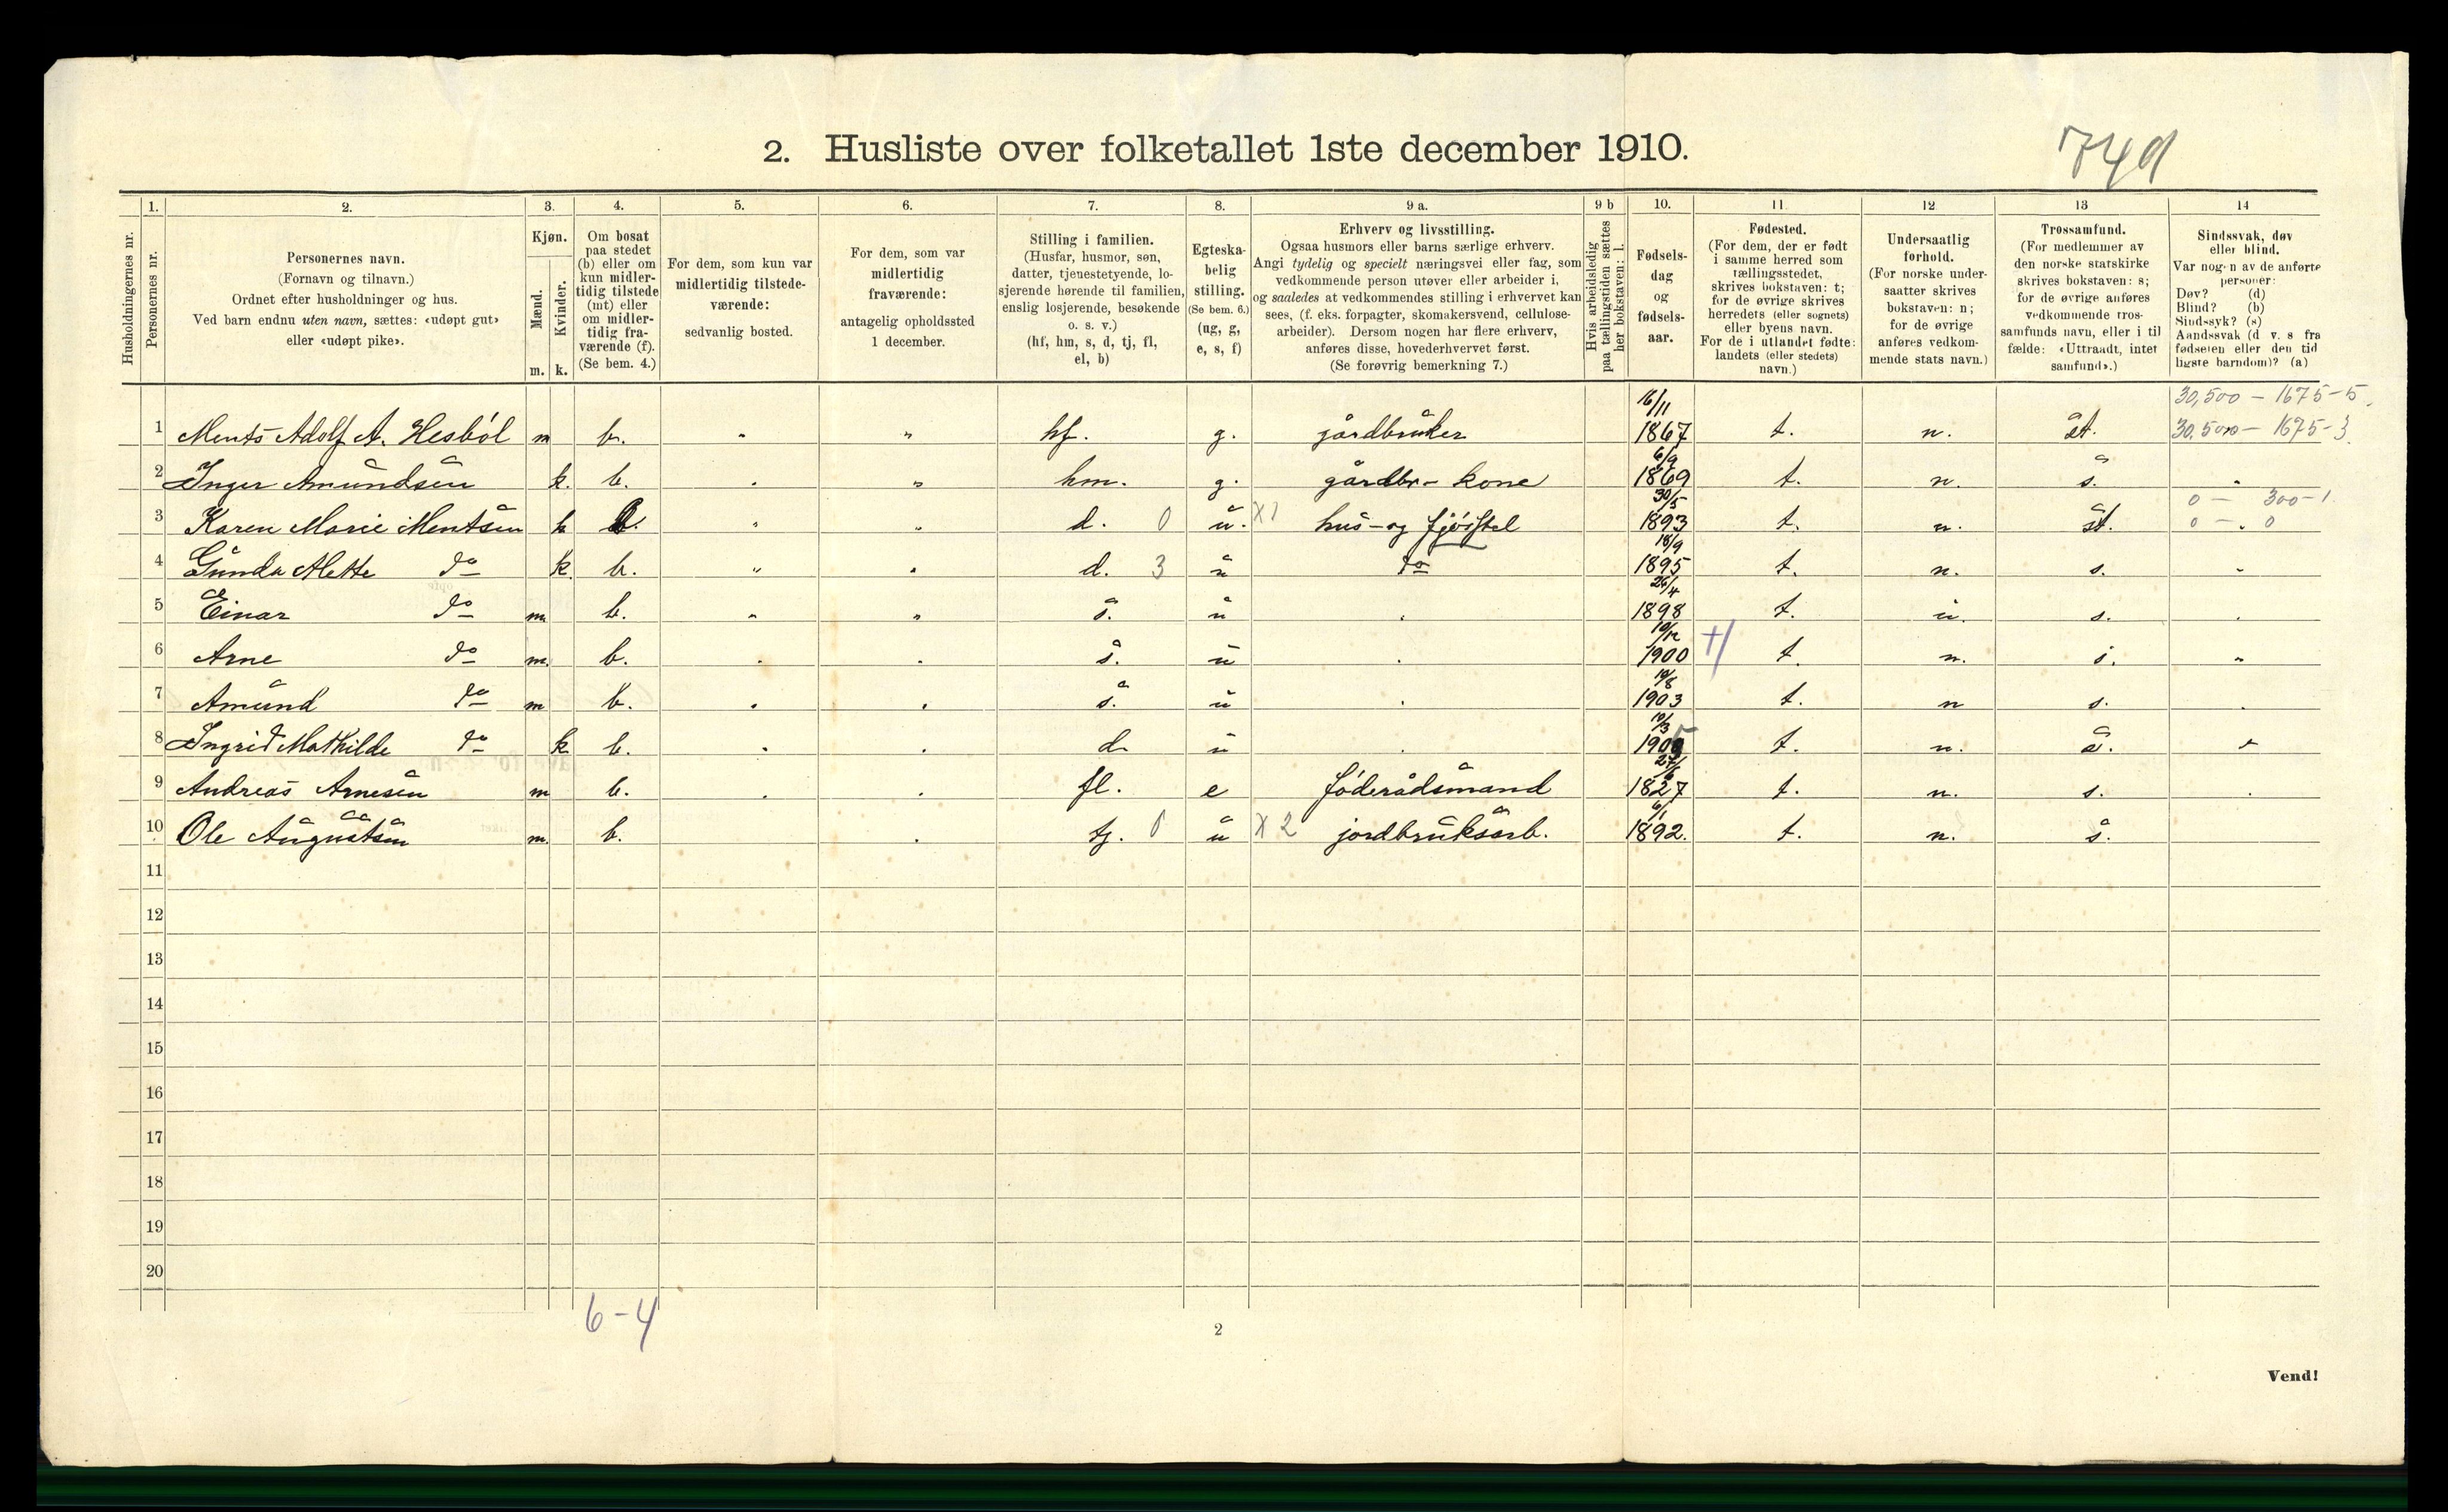 2. Husliste over folketallet 1ste december 1910.
749
Husholdningernes nr.
1.
Personernes nr.
2.
Personernes navn.
(Fornavn og tilnavn.)
Ordnet efter husholdninger og hus.
Ved barn endnu uten navn, sættes: «udøpt gut»
eller «udøpt pike».
3.
Kjøn.
Mænd.
Kvinder.
m. k.
4.
Om bosat
paa stedet
(b) eller om
kun midler-
tidig tilstede
(mt) eller
om midler-
tidig fra-
værende (f).
(Se bem. 4.)
5.
For dem, som kun var
midlertidig tilstede-
værende:
sedvanlig bosted.
6.
For dem, som var
midlertidig
fraværende:
antagelig opholdssted
1 december.
7.
Stilling i familien.
(Husfar, husmor, søn,
datter, tjenestetyende, lo-
sjerende hørende til familien,
enslig losjerende, besøkende
o. s. v.)
(hf, hm, s, d, tj, fl,
el, b)
8.
Egteska-
belig
stilling.
(Se bem. 6.)
(ug, g,
e, s, f)
9 a.
Erhverv og livsstilling.
Ogsaa husmors eller barns særlige erhverv.
Angi tydelig og specielt næringsvei eller fag, som
vedkommende person utøver eller arbeider i,
og saaledes at vedkommendes stilling i erhvervet kan
sees, (f. eks. forpagter, skomakersvend, cellulose-
arbeider). Dersom nogen har flere erhverv,
anføres disse, hovederhvervet først.
(Se forøvrig bemerkning 7.)
9 b
Hvis arbeidsledig
paa tællingstiden sættes
her bokstaven: l.
10.
Fødsels-
dag
og
fødsels-
aar.
11.
Fødested.
(For dem, der er født
i samme herred som
tællingsstedet,
skrives bokstaven: t;
for de øvrige skrives
herredets (eller sognets)
eller byens navn.
For de i utlandet fødte:
landets (eller stedets)
navn.)
12.
Undersaatlig
forhold.
(For norske under-
saatter skrives
bokstaven: n;
for de øvrige
anføres vedkom-
mende stats navn.)
13
Trossamfund.
(For medlemmer av
den norske statskirke
skrives bokstaven: s;
for de øvrige anføres
vedkommende tros-
samfunds navn, eller i til
fælde: «Uttraadt, intet
samfund».)
14
Sindssvak, døv
eller blind.
Var nogen av de anførte
personer:
Døv? (d)
Blind? (b)
Sindssyk? (s)
Aandssvak (d. v. s fra
fødselen eller den tid
ligste barndom)? (a)
30,500 – 1675–5
1 Ments Adolf A. Hesbøl m b. " " hf. g. gårdbruker 16/11 1867 t. n. st. 30.500 – 1675–3
2 Inger Amundsen k. b. " " hm. g. gårdbr– kone 6/9 1869 t. n. s. "
0 – 300–1
3 Karen Marie Mentsen k b. " " d. 0 u. X1 hus– og fjøsstel 30/5 1893 t. n. st. 0 – . 0
4 Gunda Alette do k. b. " " d. 3 u do 18/9 1895 t. n. s. "
5 Einar do m. b. " " s. u . 26/4 1898 t. n. s. .
6 Arne do m. b. . . s. u . 19/12 1900 t. n. s. "
7 Amund do m b. . . s. u . 1903 t. n s. .
8 Ingrid Mathilde do k b. . . d. u . 10/3 1905 t. n. s. "
9 Andreas Arnesen m b. . . fl. e føderådsmand 27/6 1827 t. n. s. .
10 Ole Augustsen m. b. . tj. 0 u X 2 jordbruksarb. 6/1 1892. t. n. s.
11
12
13
14
15
16
17
18
19
20
6–4
2
Vend!